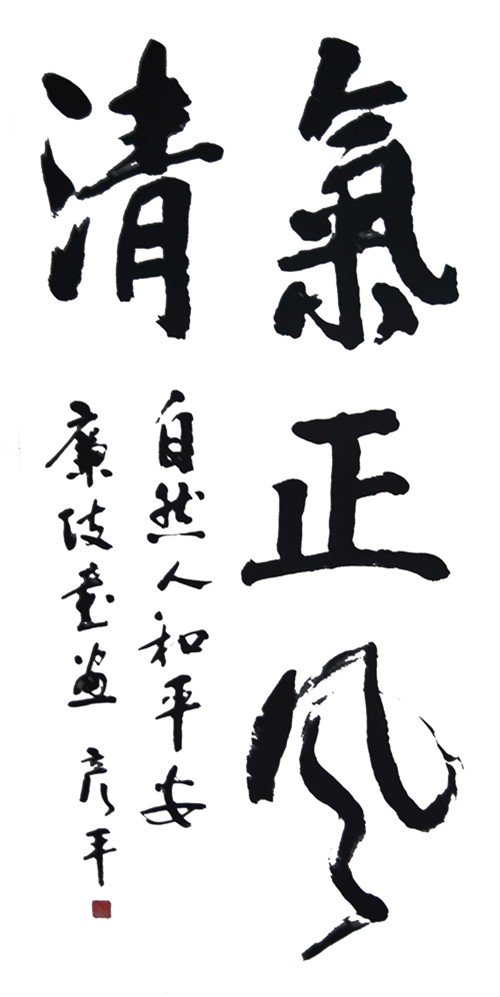 氣正風
清
自然人和平安
廉 彥平